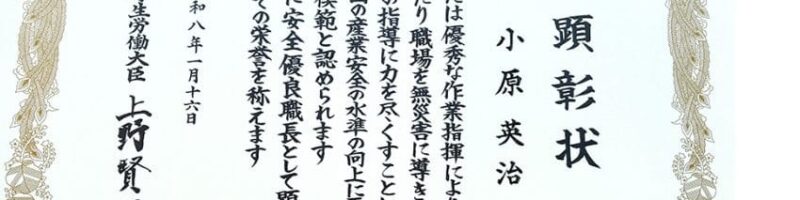 顕彰状
小原英治
たは優秀な作業指揮により
たり職場を無災害に導き
の指導に力を尽くすこと
国の産業安全の水準の向上に
模範と認められます
に安全優良職長として顕
ての栄誉を称えます
和八年一月十六日
生労働大臣 上野賢